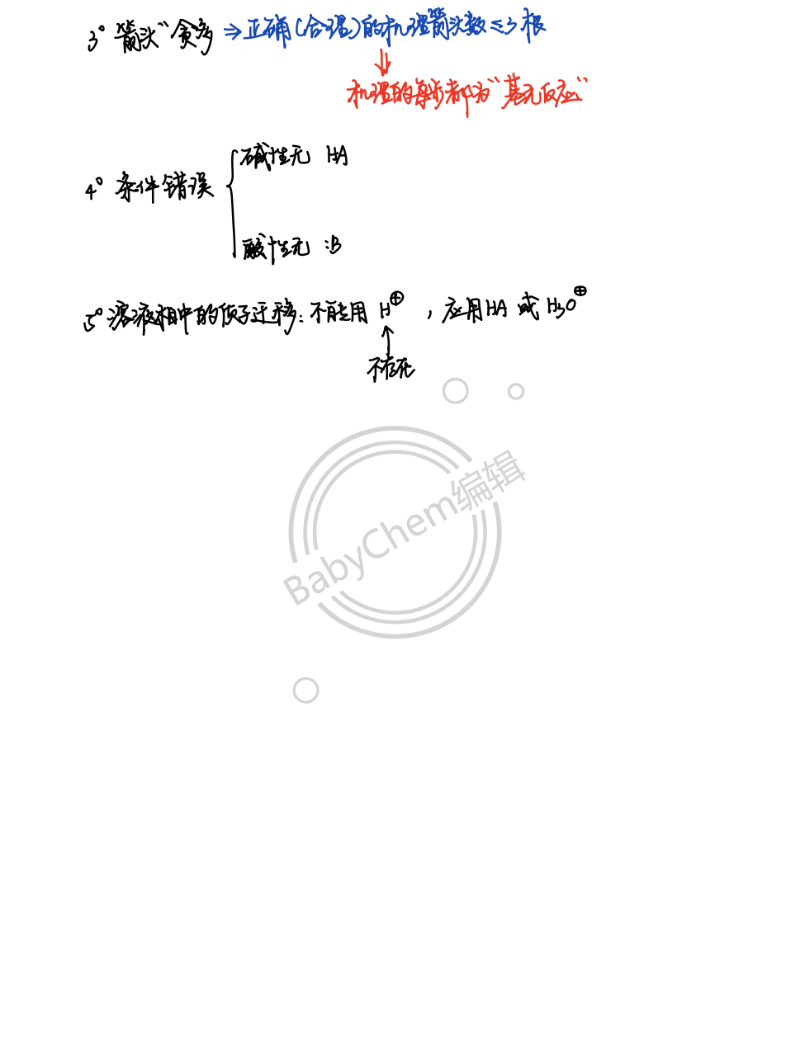 3° 箭头"贪多 ⇒ 正确(合理)的机理箭头数 ≤3根
⇓
机理的每步都为"基元反应"
碱性无 HA
4° 条件错误
酸性无 :B
5° 溶液相中的质子迁移: 不能用 H⊕ , 应用HA 或 H3O⊕
↑
不存在
BabyChem编辑